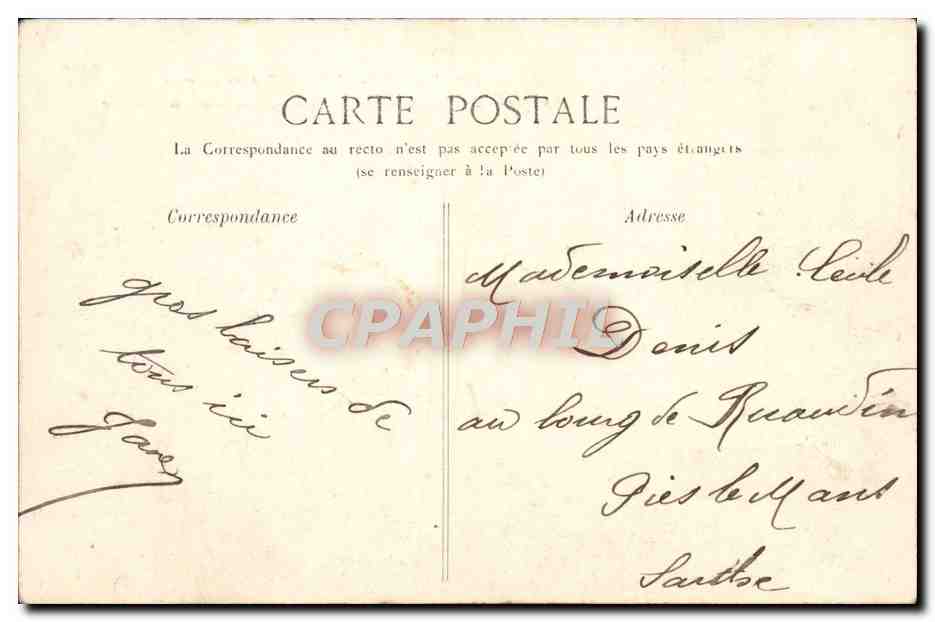 CARTE POSTALE
La Correspondance au recto n'est pas acceptée par tous les pays étrangers
(se renseigner à la Poste)
Correspondance
gros baisers de
tous ici
Adresse
Mademoiselle Cécile
Denis
au bourg de Ruaudin
Près le Mans
Sarthe
CPAPHIL